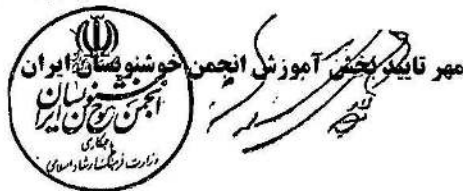 مهر تایید بخش آموزش انجمن خوشنویسان ایران
انجمن خوشنویسان ایران
با همکاری
وزارت فرهنگ و ارشاد اسلامی